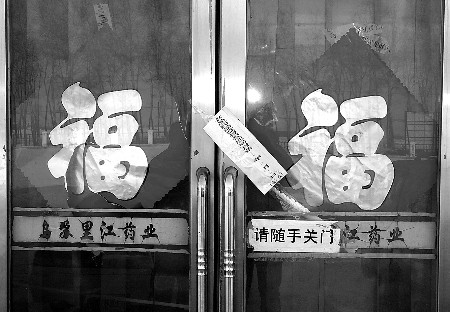 福
福
乌苏里江药业
江药业
请随手关门